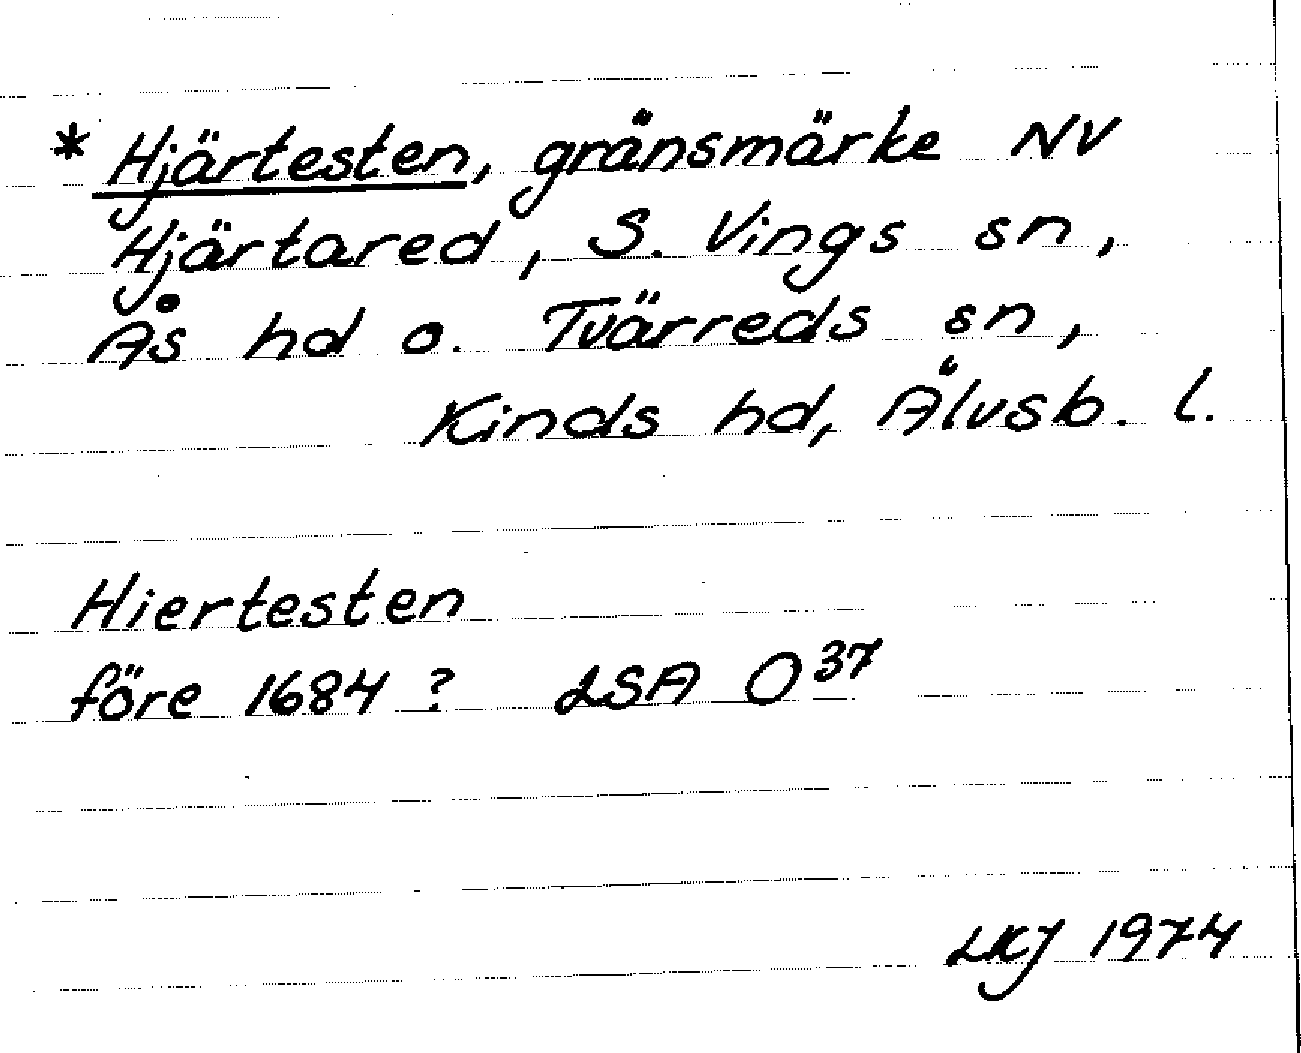 * Hjärtesten, gränsmärke NV
Hjärtared, S. Vings sn,
Ås hd o. Tvärreds sn,
Kinds hd, Älvsb. l.
Hiertesten
före 1684? LSA O³⁷
LKJ 1974